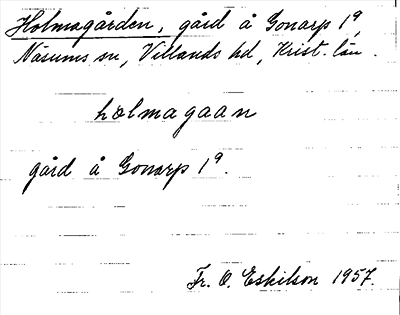 Holmagården, gård å Gonarp 1⁹,
Näsums sn, Villands hd, Krist. län.
hålmagaan
gård å Gonarp 1⁹.
Fr. O. Eskilson 1957.